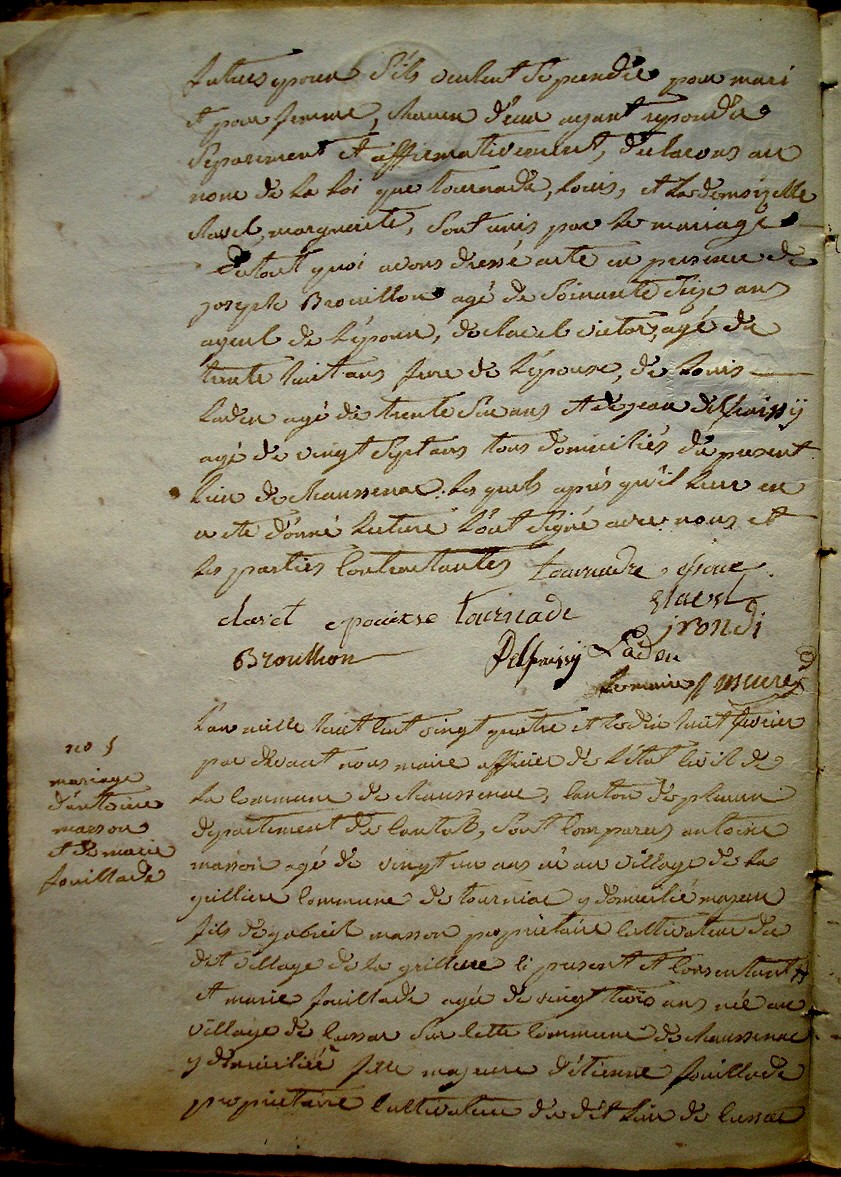 futurs epoux s'ils veulent se prendre pour mari
et pour femme, chacun d'eux ayant repondu
separement et affirmativement, declarons au
nom de la loi que tournade, louis, et la demoizelle
clavel, marguerite, sont unis par le mariage
De tout quoi avons dressé acte en presence de
joseph Brouillon agé de soixante seize ans
ayeul de l'époux, de clavel victor, agé de
trente huit ans frere de l'épouse, de louis
laden agé de trente six ans et de jean delpuissÿ
agé de vingt sept ans tous domiciliés du present
lieu de chaussenac. les quels aprés qu'il leur en
a eté donné lecture l'ont signé avec nous et
les parties contractantes tournadre epoux
clavel epouse tournade clavel
jrondi
Brouillon Delpuissÿ Laden
le maire
no 5
mariage
d'antoine
masson
et de marie
fouillade
L'an mille huit cent vingt quatre et le dix huit fevrier
par devant nous maire officier de l'état civil de
la commune de chaussenac, canton de pleaux
departement du cantal, sont comparus antoine
masson agé de vingt un ans né au village de la
grilliere commune de tourniac y domicilié majeur
fils de gabriel masson proprietaire cultivateur du
dit village de la grilliere ci present et consentant
et marie fouillade agée de vingt trois ans née au
village de lassac sur cette commune de chaussenac
y domiciliée fille majeure d'étienne fouillade
proprietaire cultivateur du dit lieu de lussac